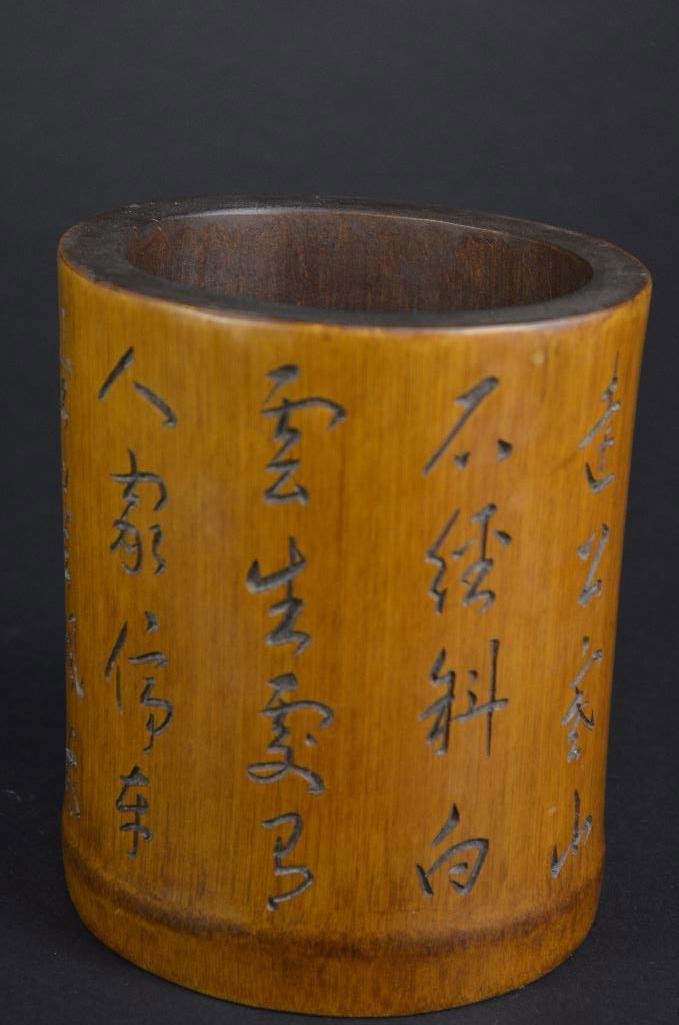 遠上寒山
石經斜白
雲生處有
人家停車